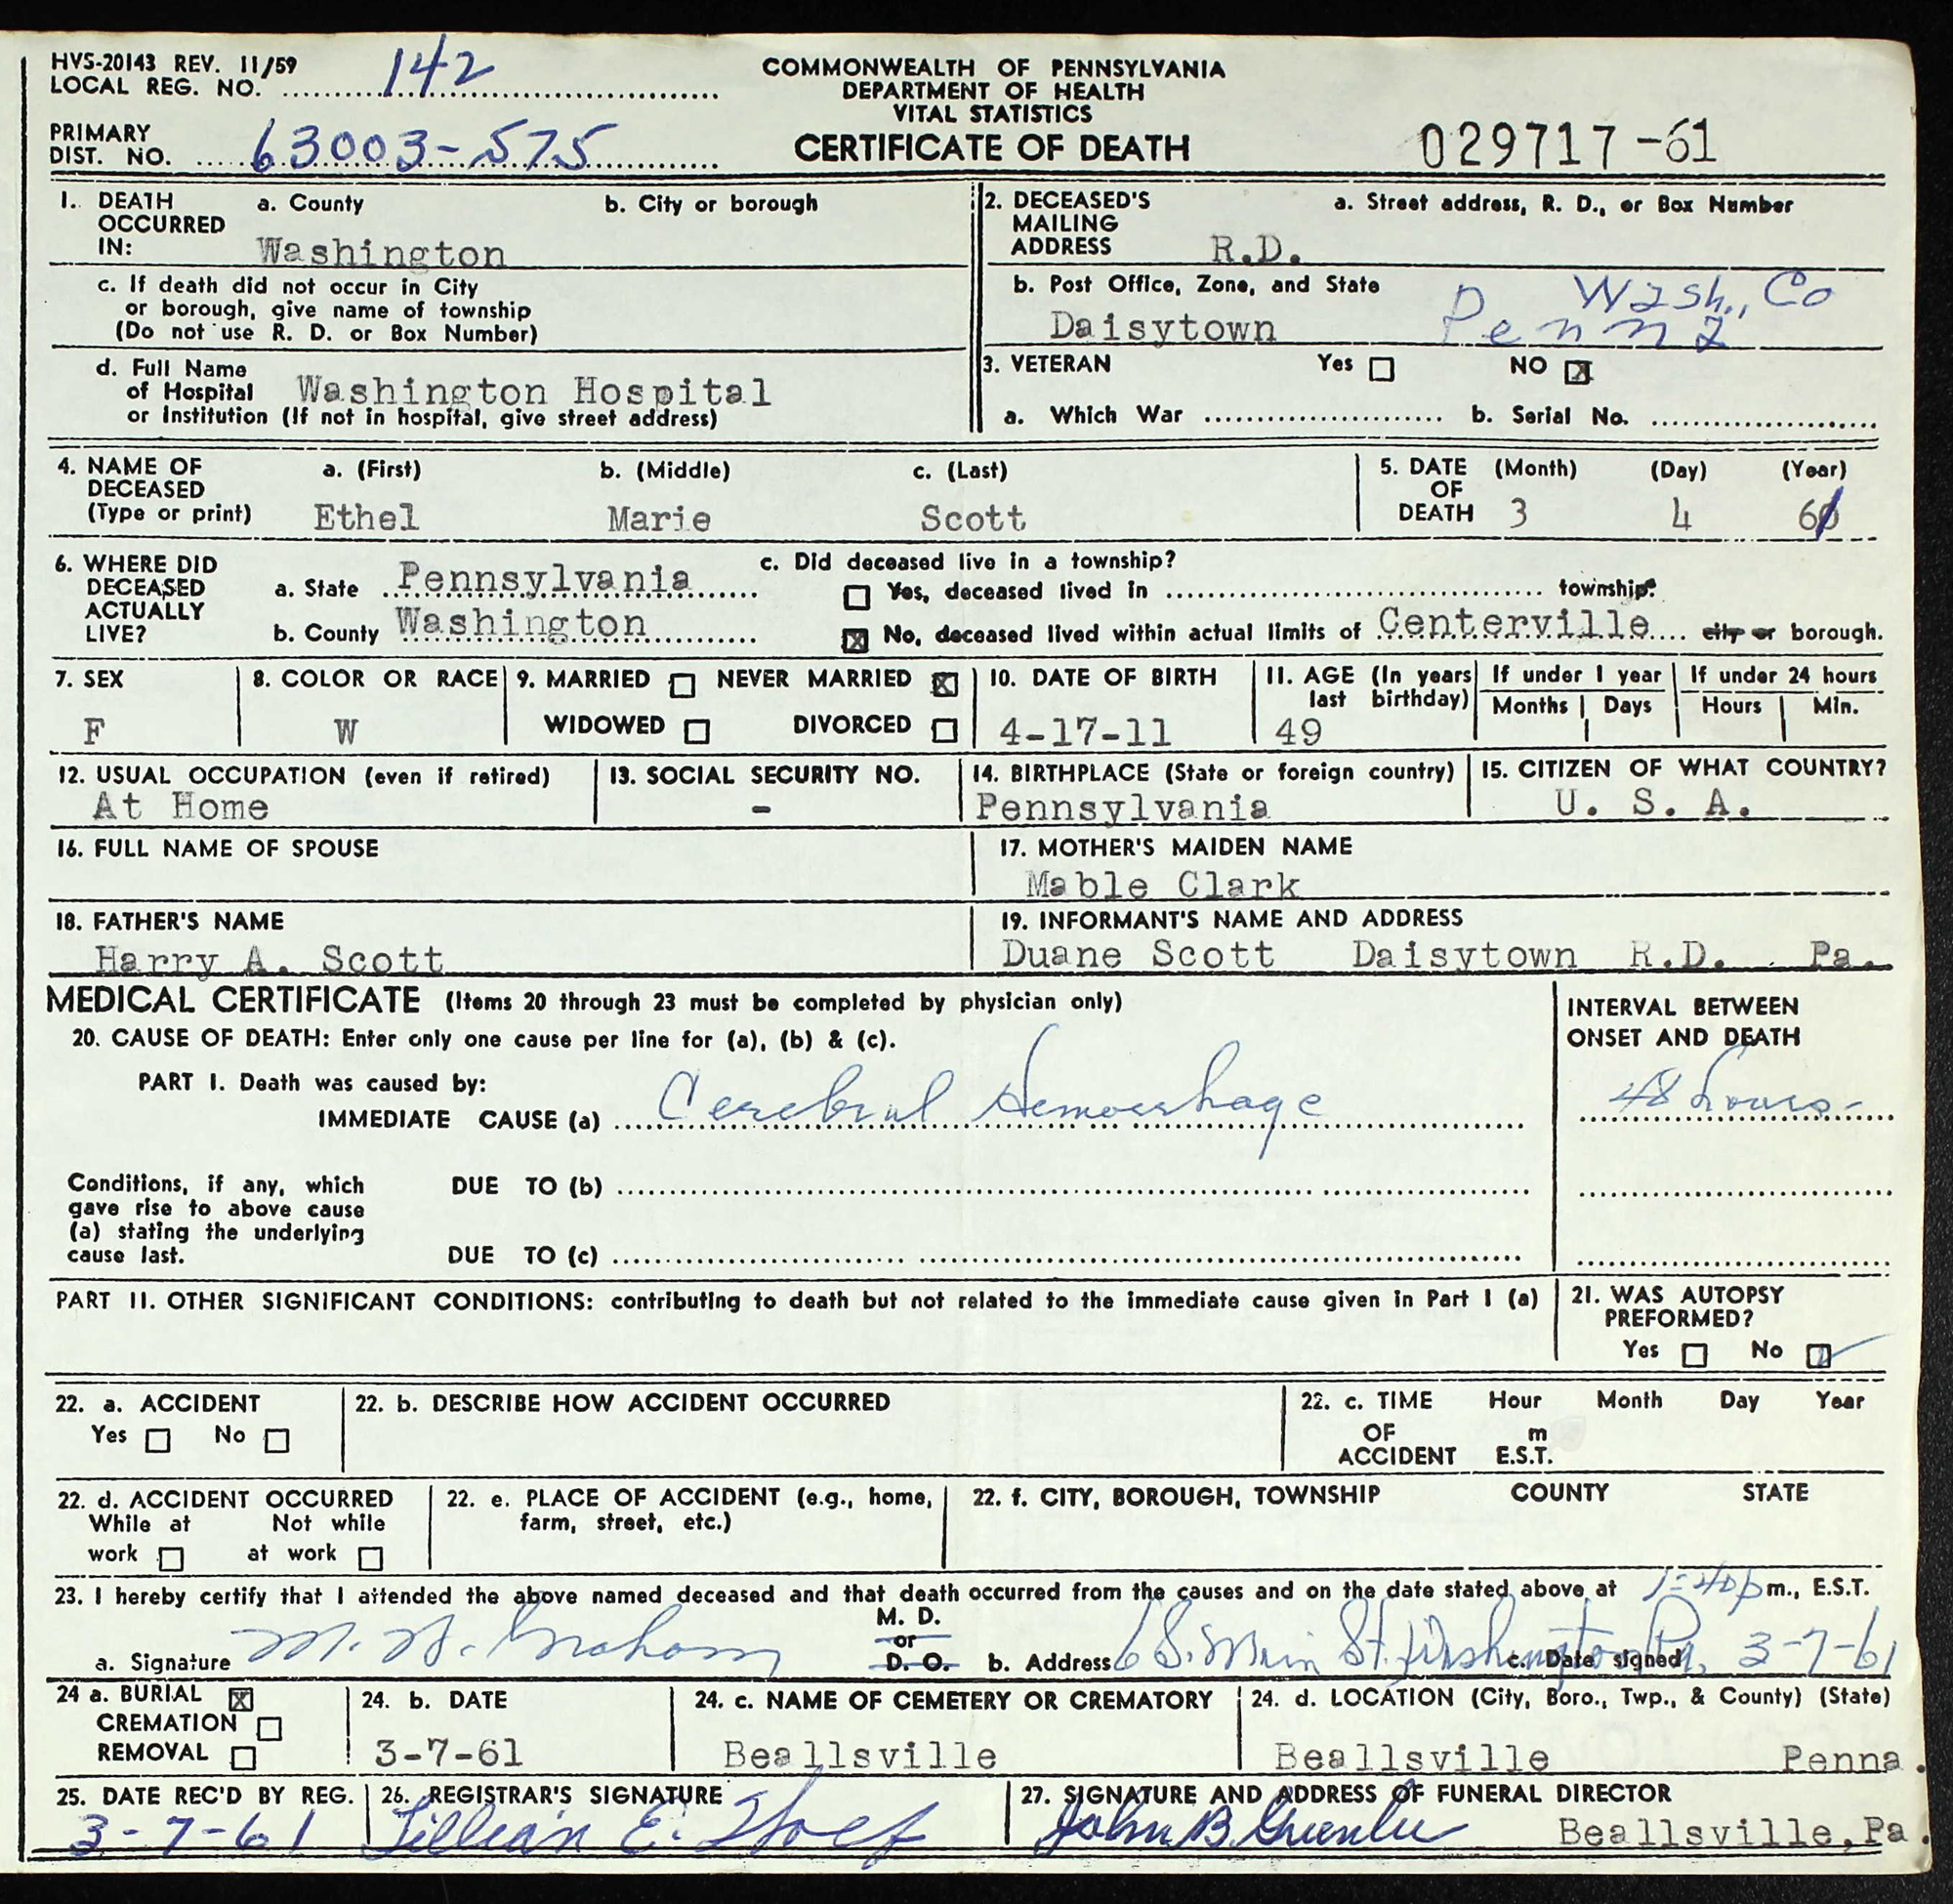 HVS-20143 REV. 11/59
LOCAL REG. NO. 142
COMMONWEALTH OF PENNSYLVANIA
DEPARTMENT OF HEALTH
VITAL STATISTICS
PRIMARY
DIST. NO. 63003-575
CERTIFICATE OF DEATH
029717-61
1. DEATH OCCURRED IN: a. County b. City or borough
Washington
c. If death did not occur in City
or borough, give name of township
(Do not use R. D. or Box Number)
d. Full Name
of Hospital Washington Hospital
or Institution (If not in hospital, give street address)
2. DECEASED'S MAILING ADDRESS a. Street address, R. D., or Box Number
R.D.
b. Post Office, Zone, and State Wash., Co
Daisytown Penna
3. VETERAN Yes NO X
a. Which War b. Serial No.
4. NAME OF DECEASED (Type or print) a. (First) b. (Middle) c. (Last)
Ethel Marie Scott
5. DATE OF DEATH (Month) (Day) (Year)
3 4 61
6. WHERE DID DECEASED ACTUALLY LIVE?
a. State Pennsylvania
b. County Washington
c. Did deceased live in a township?
Yes, deceased lived in township.
X No, deceased lived within actual limits of Centerville city or borough.
7. SEX
F
8. COLOR OR RACE
W
9. MARRIED NEVER MARRIED X
WIDOWED DIVORCED
10. DATE OF BIRTH
4-17-11
11. AGE (In years last birthday)
49
If under 1 year
Months Days
If under 24 hours
Hours Min.
12. USUAL OCCUPATION (even if retired)
At Home
13. SOCIAL SECURITY NO.
-
14. BIRTHPLACE (State or foreign country)
Pennsylvania
15. CITIZEN OF WHAT COUNTRY?
U. S. A.
16. FULL NAME OF SPOUSE
17. MOTHER'S MAIDEN NAME
Mable Clark
18. FATHER'S NAME
Harry A. Scott
19. INFORMANT'S NAME AND ADDRESS
Duane Scott Daisytown R.D. Pa.
MEDICAL CERTIFICATE (Items 20 through 23 must be completed by physician only)
20. CAUSE OF DEATH: Enter only one cause per line for (a), (b) & (c).
INTERVAL BETWEEN
ONSET AND DEATH
PART I. Death was caused by:
IMMEDIATE CAUSE (a) Cerebral Hemorrhage 48 hours-
Conditions, if any, which
gave rise to above cause
(a) stating the underlying
cause last.
DUE TO (b)
DUE TO (c)
PART II. OTHER SIGNIFICANT CONDITIONS: contributing to death but not related to the immediate cause given in Part I (a)
21. WAS AUTOPSY
PREFORMED?
Yes No ✓
22. a. ACCIDENT
Yes No
22. b. DESCRIBE HOW ACCIDENT OCCURRED
22. c. TIME OF ACCIDENT Hour Month Day Year
m
E.S.T.
22. d. ACCIDENT OCCURRED
While at work Not while at work
22. e. PLACE OF ACCIDENT (e.g., home,
farm, street, etc.)
22. f. CITY, BOROUGH, TOWNSHIP COUNTY STATE
23. I hereby certify that I attended the above named deceased and that death occurred from the causes and on the date stated above at 1:40 p m., E.S.T.
a. Signature M. N. Graham M. D. or D. O. b. Address 6 S. Main St. Washington Pa. c. Date signed 3-7-61
24 a. BURIAL X
CREMATION
REMOVAL
24. b. DATE
3-7-61
24. c. NAME OF CEMETERY OR CREMATORY
Beallsville
24. d. LOCATION (City, Boro., Twp., & County) (State)
Beallsville Penna.
25. DATE REC'D BY REG.
3-7-61
26. REGISTRAR'S SIGNATURE
Lillian E.
27. SIGNATURE AND ADDRESS OF FUNERAL DIRECTOR
John B. Greenlee Beallsville, Pa.